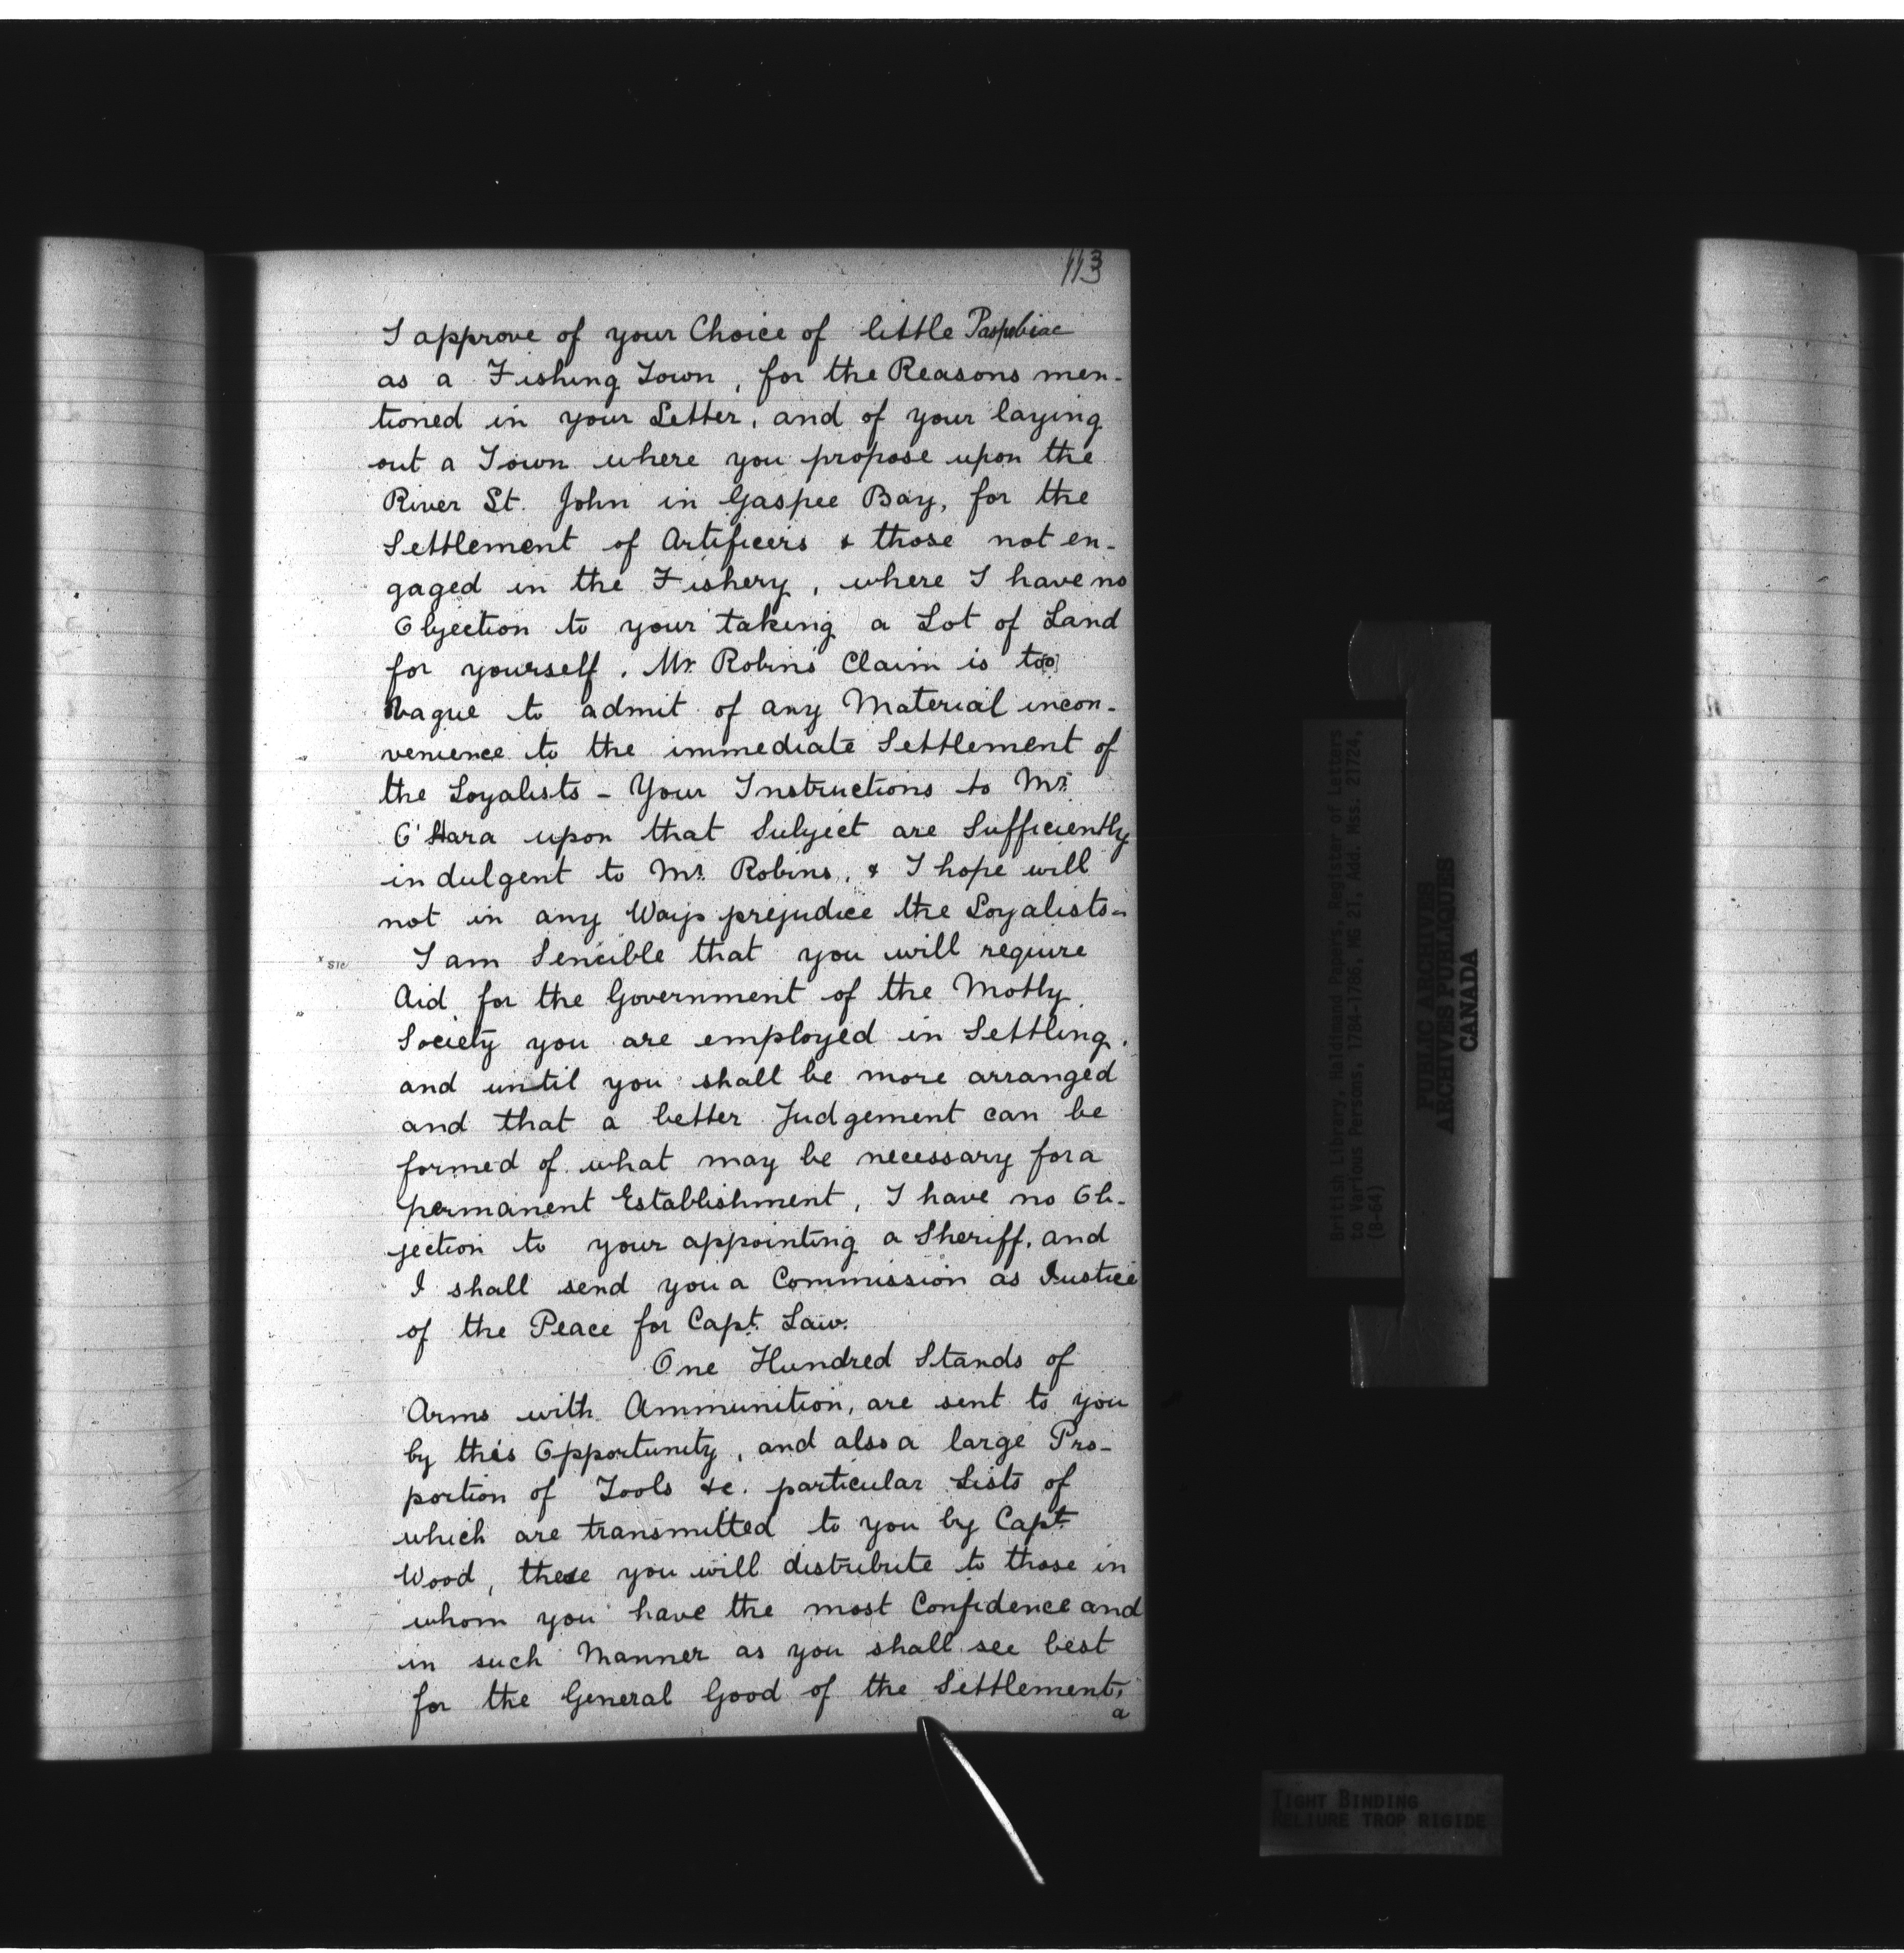 113
I approve of your Choice of little Paspebiac
as a Fishing Town, for the Reasons men-
tioned in your Letter, and of your laying
out a Town where you propose upon the
River St. John in Gaspee Bay, for the
Settlement of Artificers & those not en-
gaged in the Fishery, where I have no
Objection to your taking a Lot of Land
for yourself. Mr. Robins Claim is too
Vague to admit of any Material incon-
venience to the immediate Settlement of
the Loyalists - Your Instructions to Mr.
O'Hara upon that Subject are Sufficiently
indulgent to Mr. Robins, & I hope will
not in any Ways prejudice the Loyalists-
I am Sencible that you will require
x sic
Aid for the Government of the Motly
Society you are employed in Settling.
and until you shall be more arranged
and that a better Judgement can be
formed of what may be necessary for a
permanent Establishment, I have no Ob-
jection to your appointing a Sheriff, and
I shall send you a Commission as Justice
of the Peace for Capt. Law.
One Hundred Stands of
Arms with Ammunition, are sent to you
by this Opportunity, and also a large Pro-
portion of Tools &c. particular Lists of
which are transmitted to you by Capt.
Wood, these you will distribute to those in
whom you have the most Confidence and
in such Manner as you shall see best
for the General Good of the Settlement,
a
British Library, Haldimand Papers. Register of Letters
to Various Persons, 1784-1786, MG 21, Add. Mss. 21724,
(B-64)
PUBLIC ARCHIVES
ARCHIVES PUBLIQUES
CANADA
TIGHT BINDING
RELIURE TROP RIGIDE